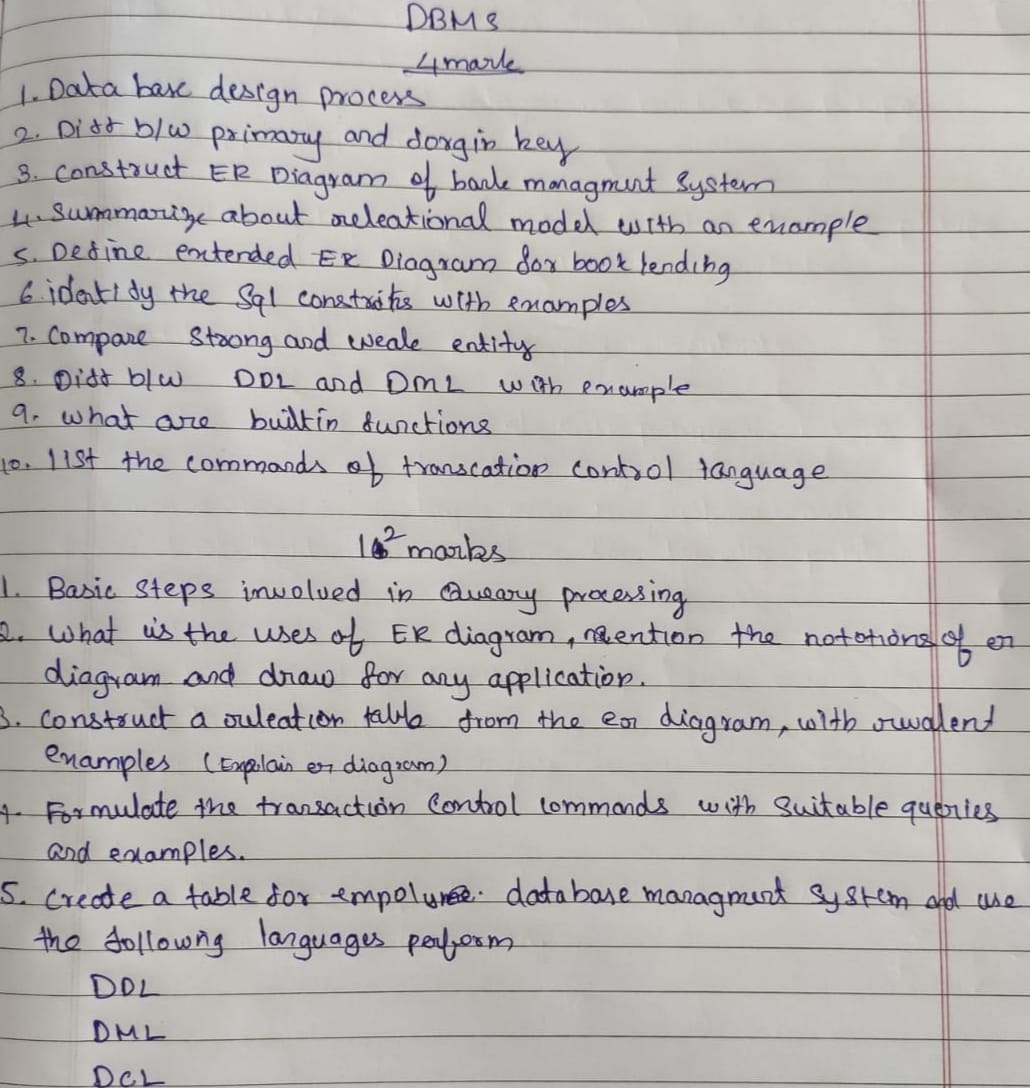 DBMS
4mark
1. Data base design process
2. Diff b/w primary and forgin key
3. Construct ER Diagram of bank managment system
4. Summarize about releational model with an example
5. Define extended ER Diagram for book lending
6. identify the Sql constraits with examples
7. Compare Strong and weak entity
8. Diff b/w DDL and DML with example
9. what are builtin functions
10. list the commands of transcation control language
marks
1. Basic steps involved in Queary processing
2. What is the uses of ER diagram, mention the notations of er
diagram and draw for any application.
3. Construct a releation table from the er diagram, with
examples (Explain er diagram)
4. Formulate the transaction Control commands with suitable queries
and examples.
5. Create a table for database managment system and use
the following languages perform
DDL
DML
DCL